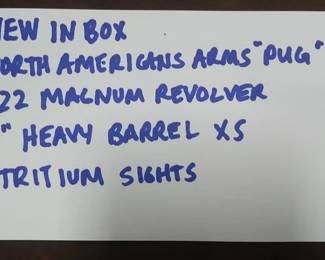 IEW IN BOX
ORTH AMERICANS ARMS "PUG"
22 MAGNUM REVOLVER
" HEAVY BARREL XS
TRITIUM SIGHTS